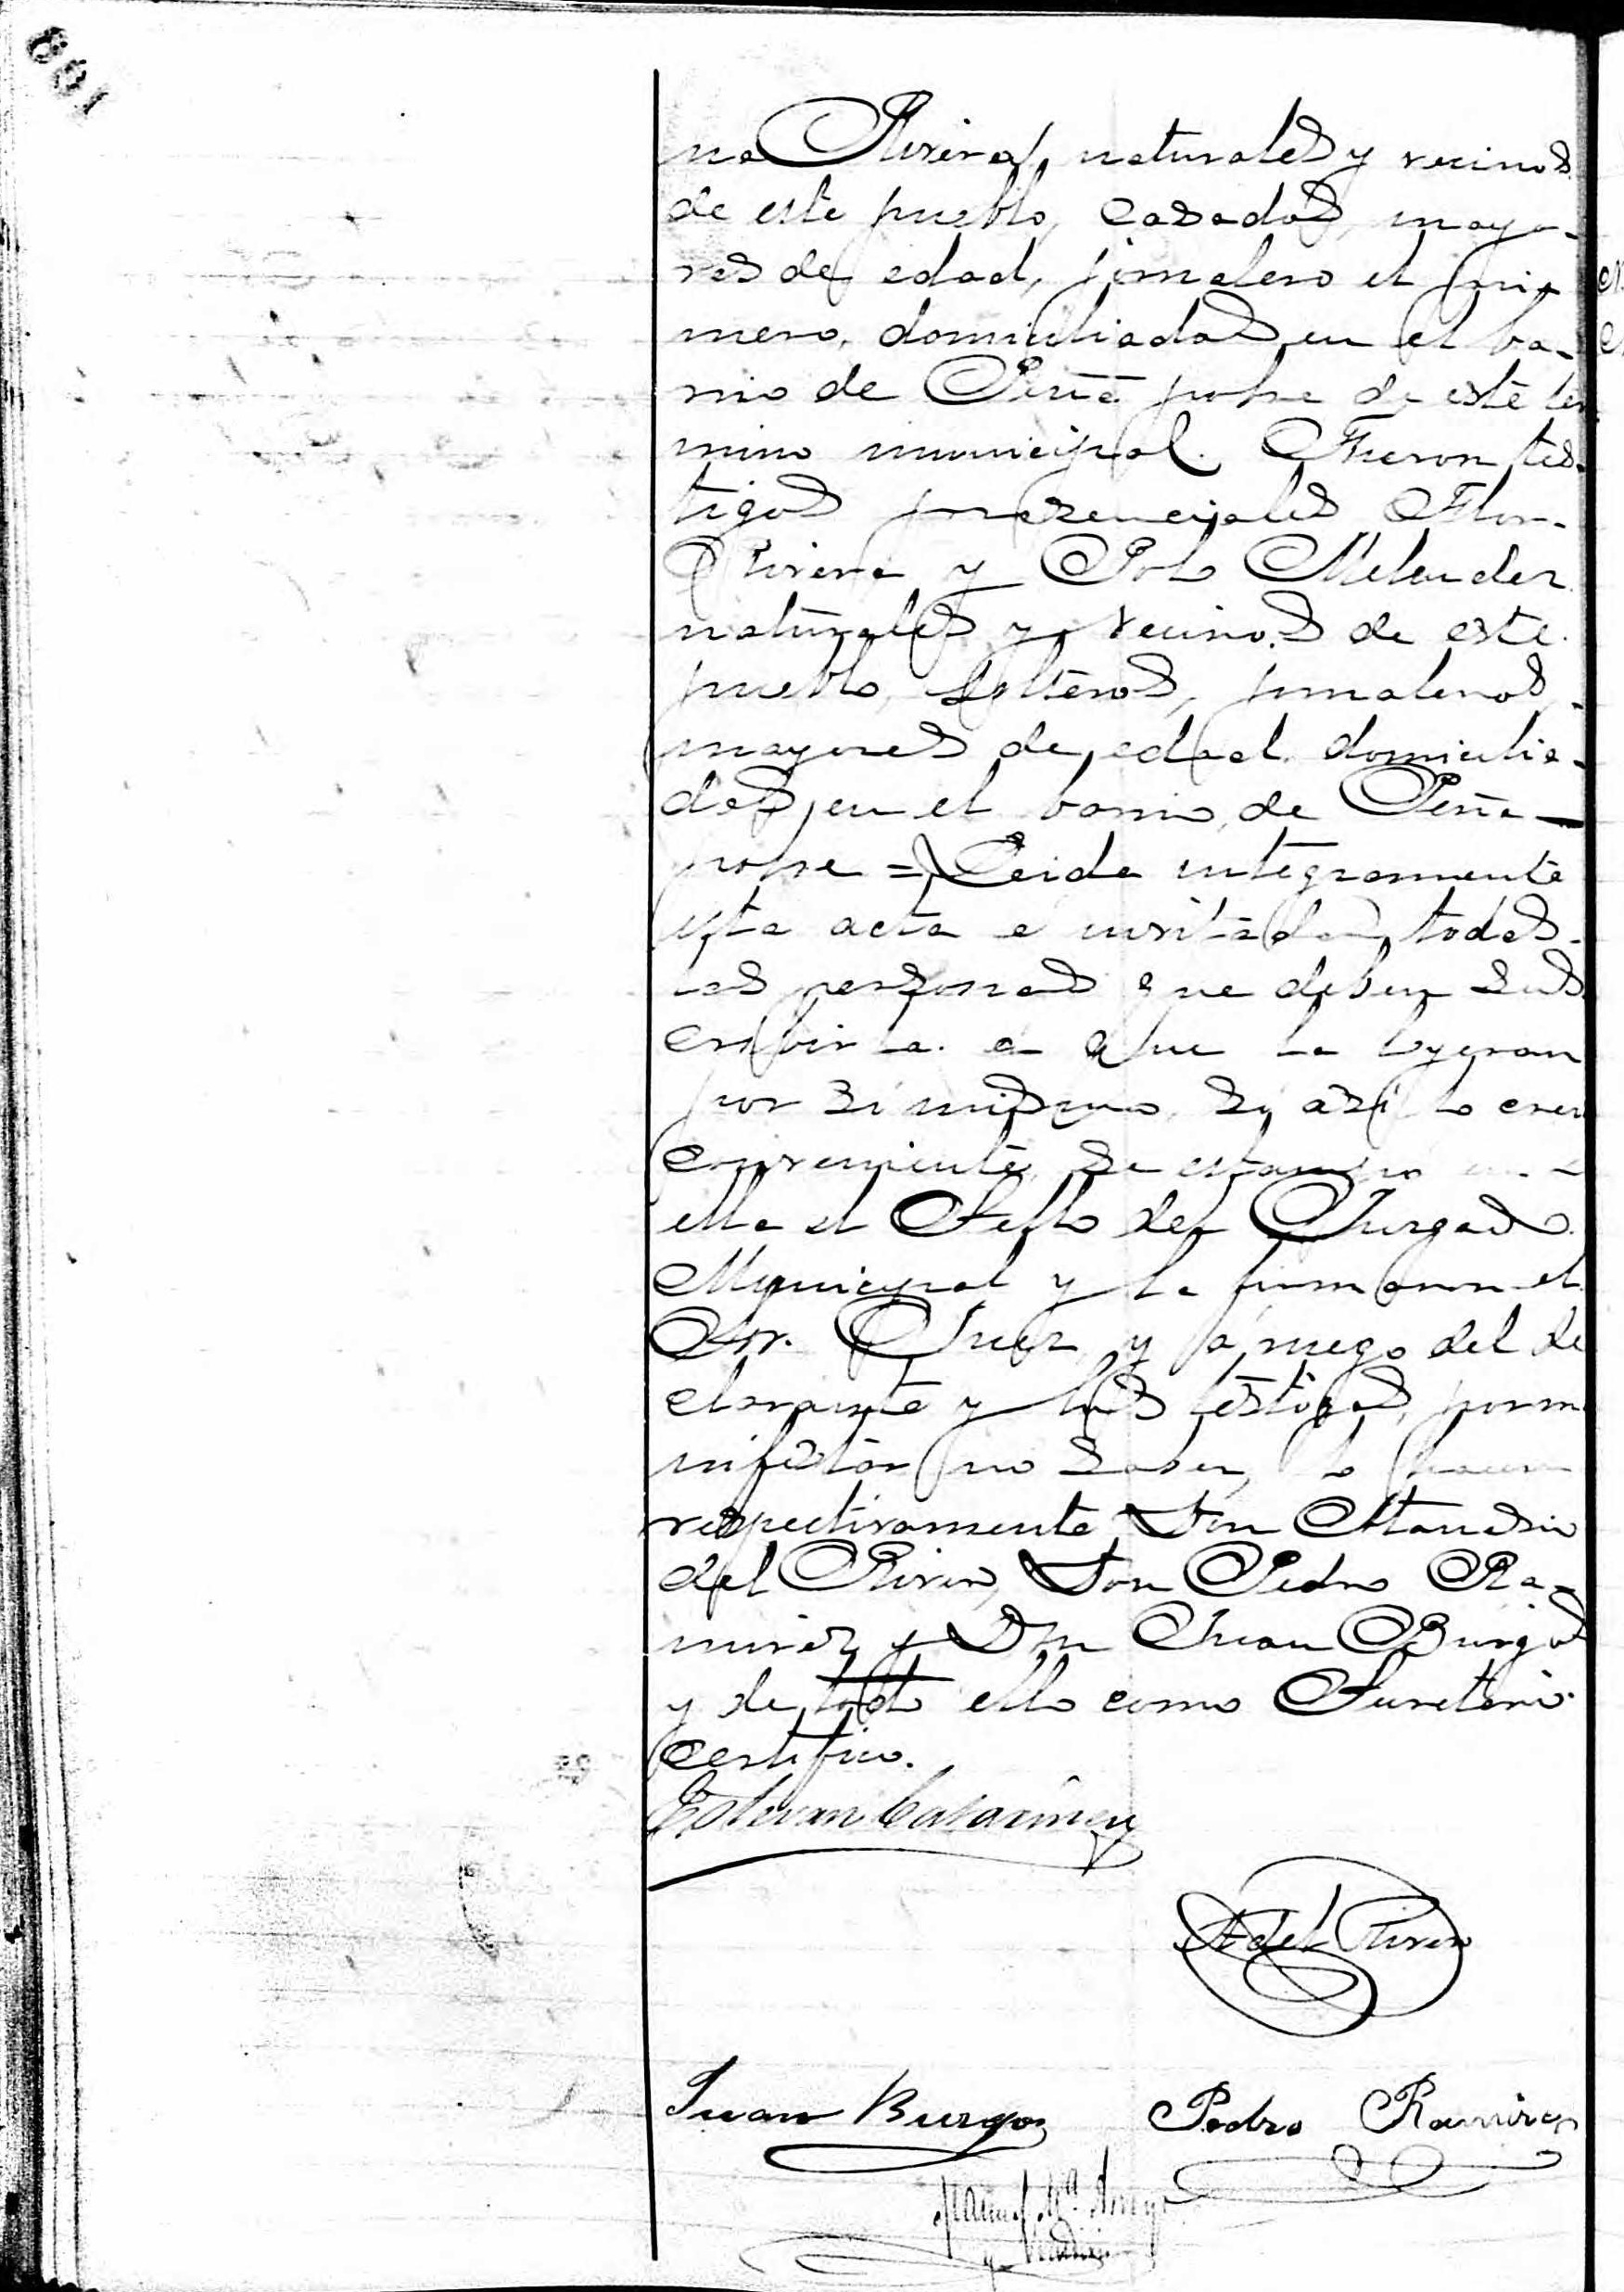 801
na Rivera, naturales y vecinos
de este pueblo, casados, mayo-
res de edad, jornalero el pri-
mero, domiciliados en el ba-
rrio de Peña pobre de este tér
mino municipal. Fueron tes-
tigos presenciales Flor-
Rivera y Polo Melendez
naturales y vecinos de este
pueblo, solteros, jornaleros,
mayores de edad domicilia-
dos en el barrio de Peña-
pobre = Leida integramente
esta acta e invitadas todas
las personas que deben sus
cribirla a que la leyeran
por si mismo, si asi lo creen
conveniente, se estampó en
ella el Sello del Juzgado
Municipal y la firmaron el
Sr. Juez y á ruego del de
clarante y los testigos, por ma
nifestar no saber, lo hacen
respectivamente Don Atanasio
del Rivero, Don Pedro Ra-
mirez y Don Juan Burgos
y de todo ello como Secretario
certifico.
Estevan
A del Rivero
Juan Burgos Pedro Ramirez
Manuel Mª Arroyo
y